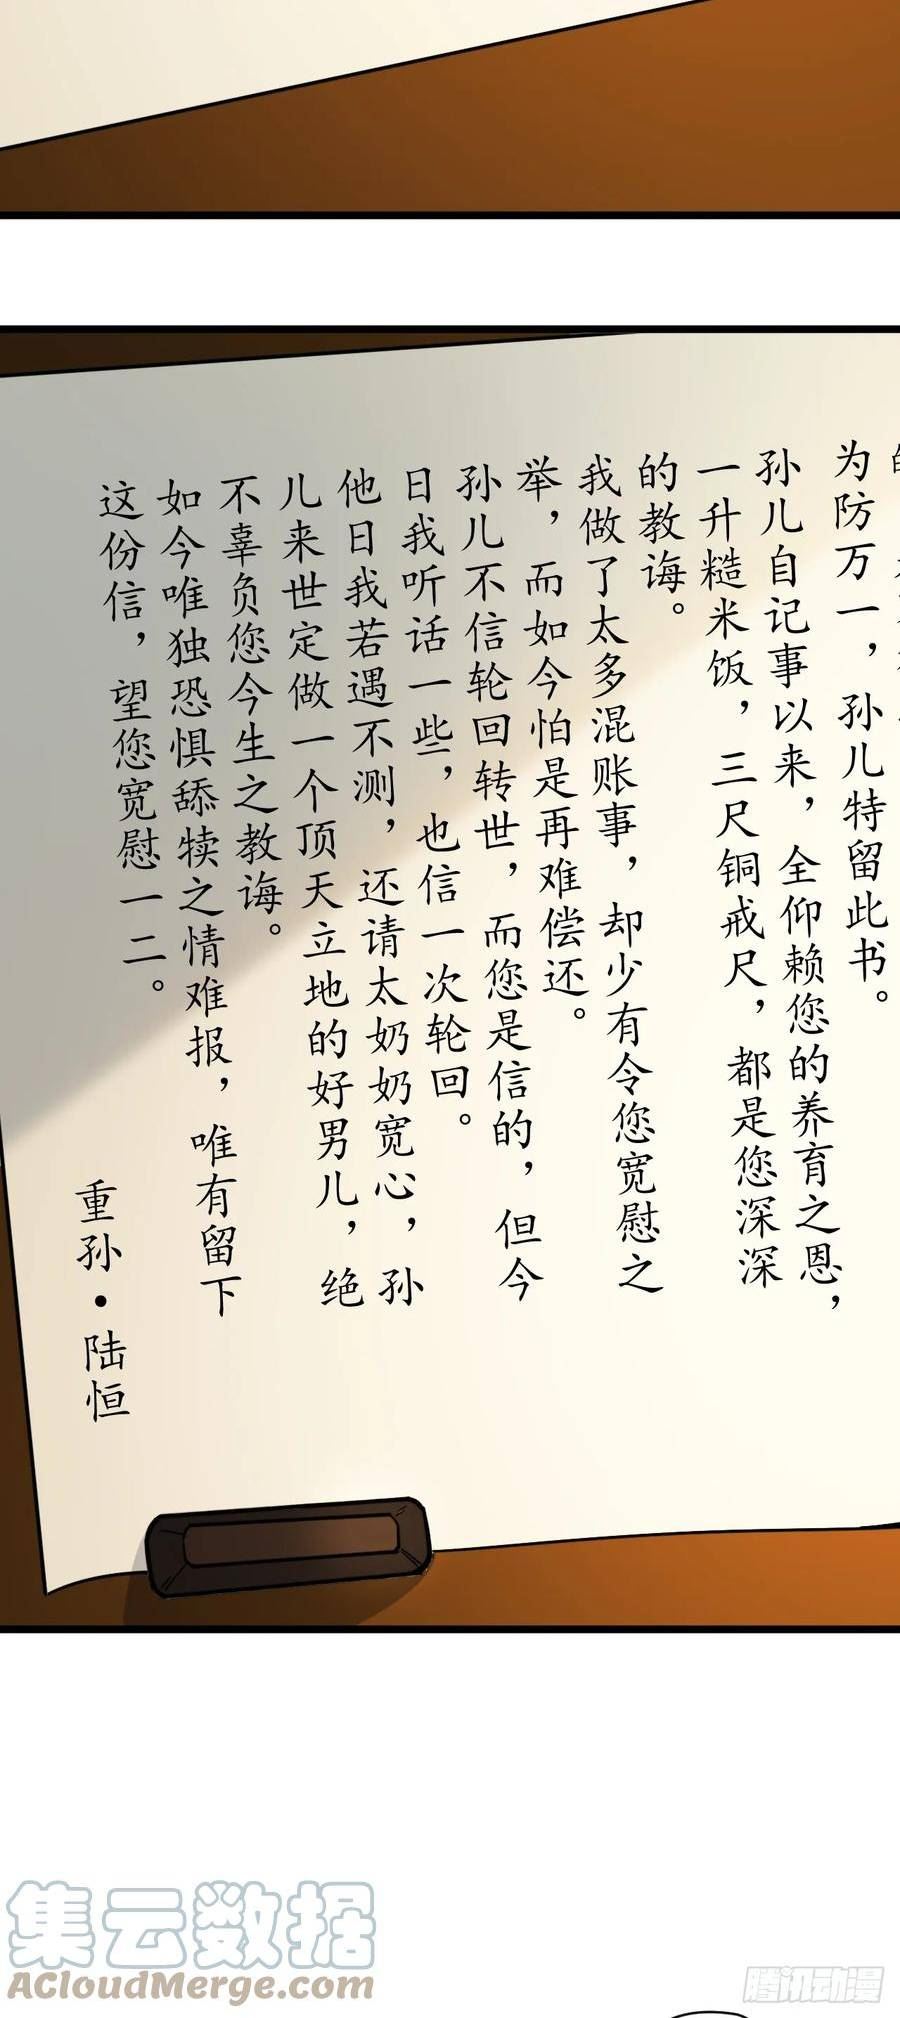 为防万一，孙儿特留此书。
孙儿自记事以来，全仰赖您的养育之恩，
一升糙米饭，三尺铜戒尺，都是您深深
的教诲。
我做了太多混账事，却少有令您宽慰之
举，而如今怕是再难偿还。
孙儿不信轮回转世，而您是信的，但今
日我听话一些，也信一次轮回。
他日我若遇不测，还请太奶奶宽心，孙
儿来世定做一个顶天立地的好男儿，绝
不辜负您今生之教诲。
如今唯独恐惧舔犊之情难报，唯有留下
这份信，望您宽慰一二。
重孙·陆恒
集云数据
ACloudMerge.com
腾讯动漫